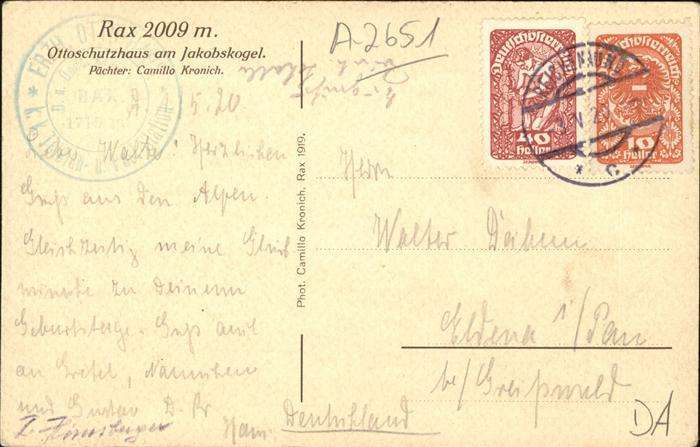 Rax 2009 m.
Ottoschutzhaus am Jakobskogel.
Pächter: Camillo Kronich.
A-2651
ERZH. OTTO
RAX
5.20
Walter! Herzlichen
Gruß aus den Alpen.
Gleichzeitig meine Glück
wünsche zu Deinem
Geburtstage. Gruß auch
an Gretel,
und Gustav
Phot. Camillo Kronich. Rax 1919.
Deutschösterreich
40
Heller
Deutschösterreich
10
Heller
V. 20
* c
Herrn
Walter
Eldena i/Pom
b/ Greifswald
Deutschland
DA